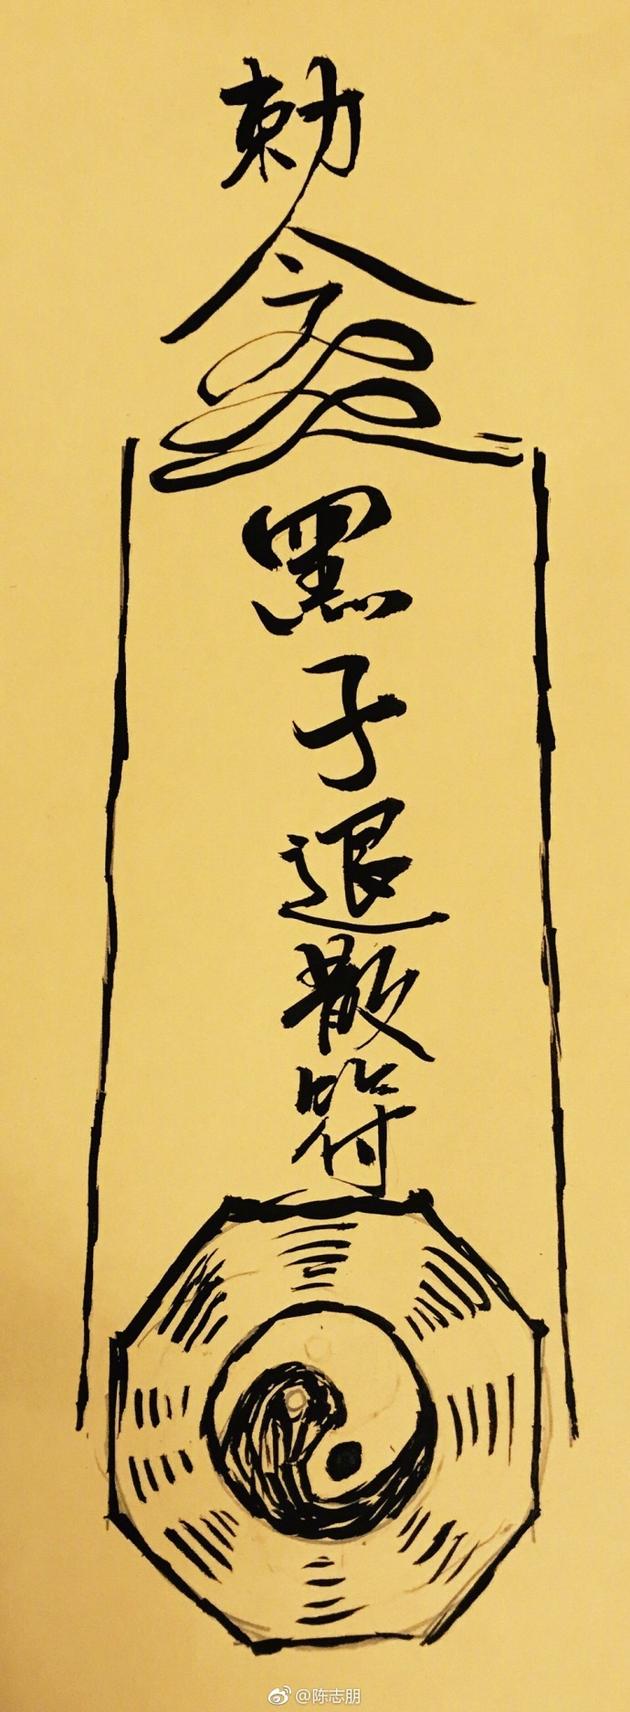 勅令
黑子退散符
@陈志朋